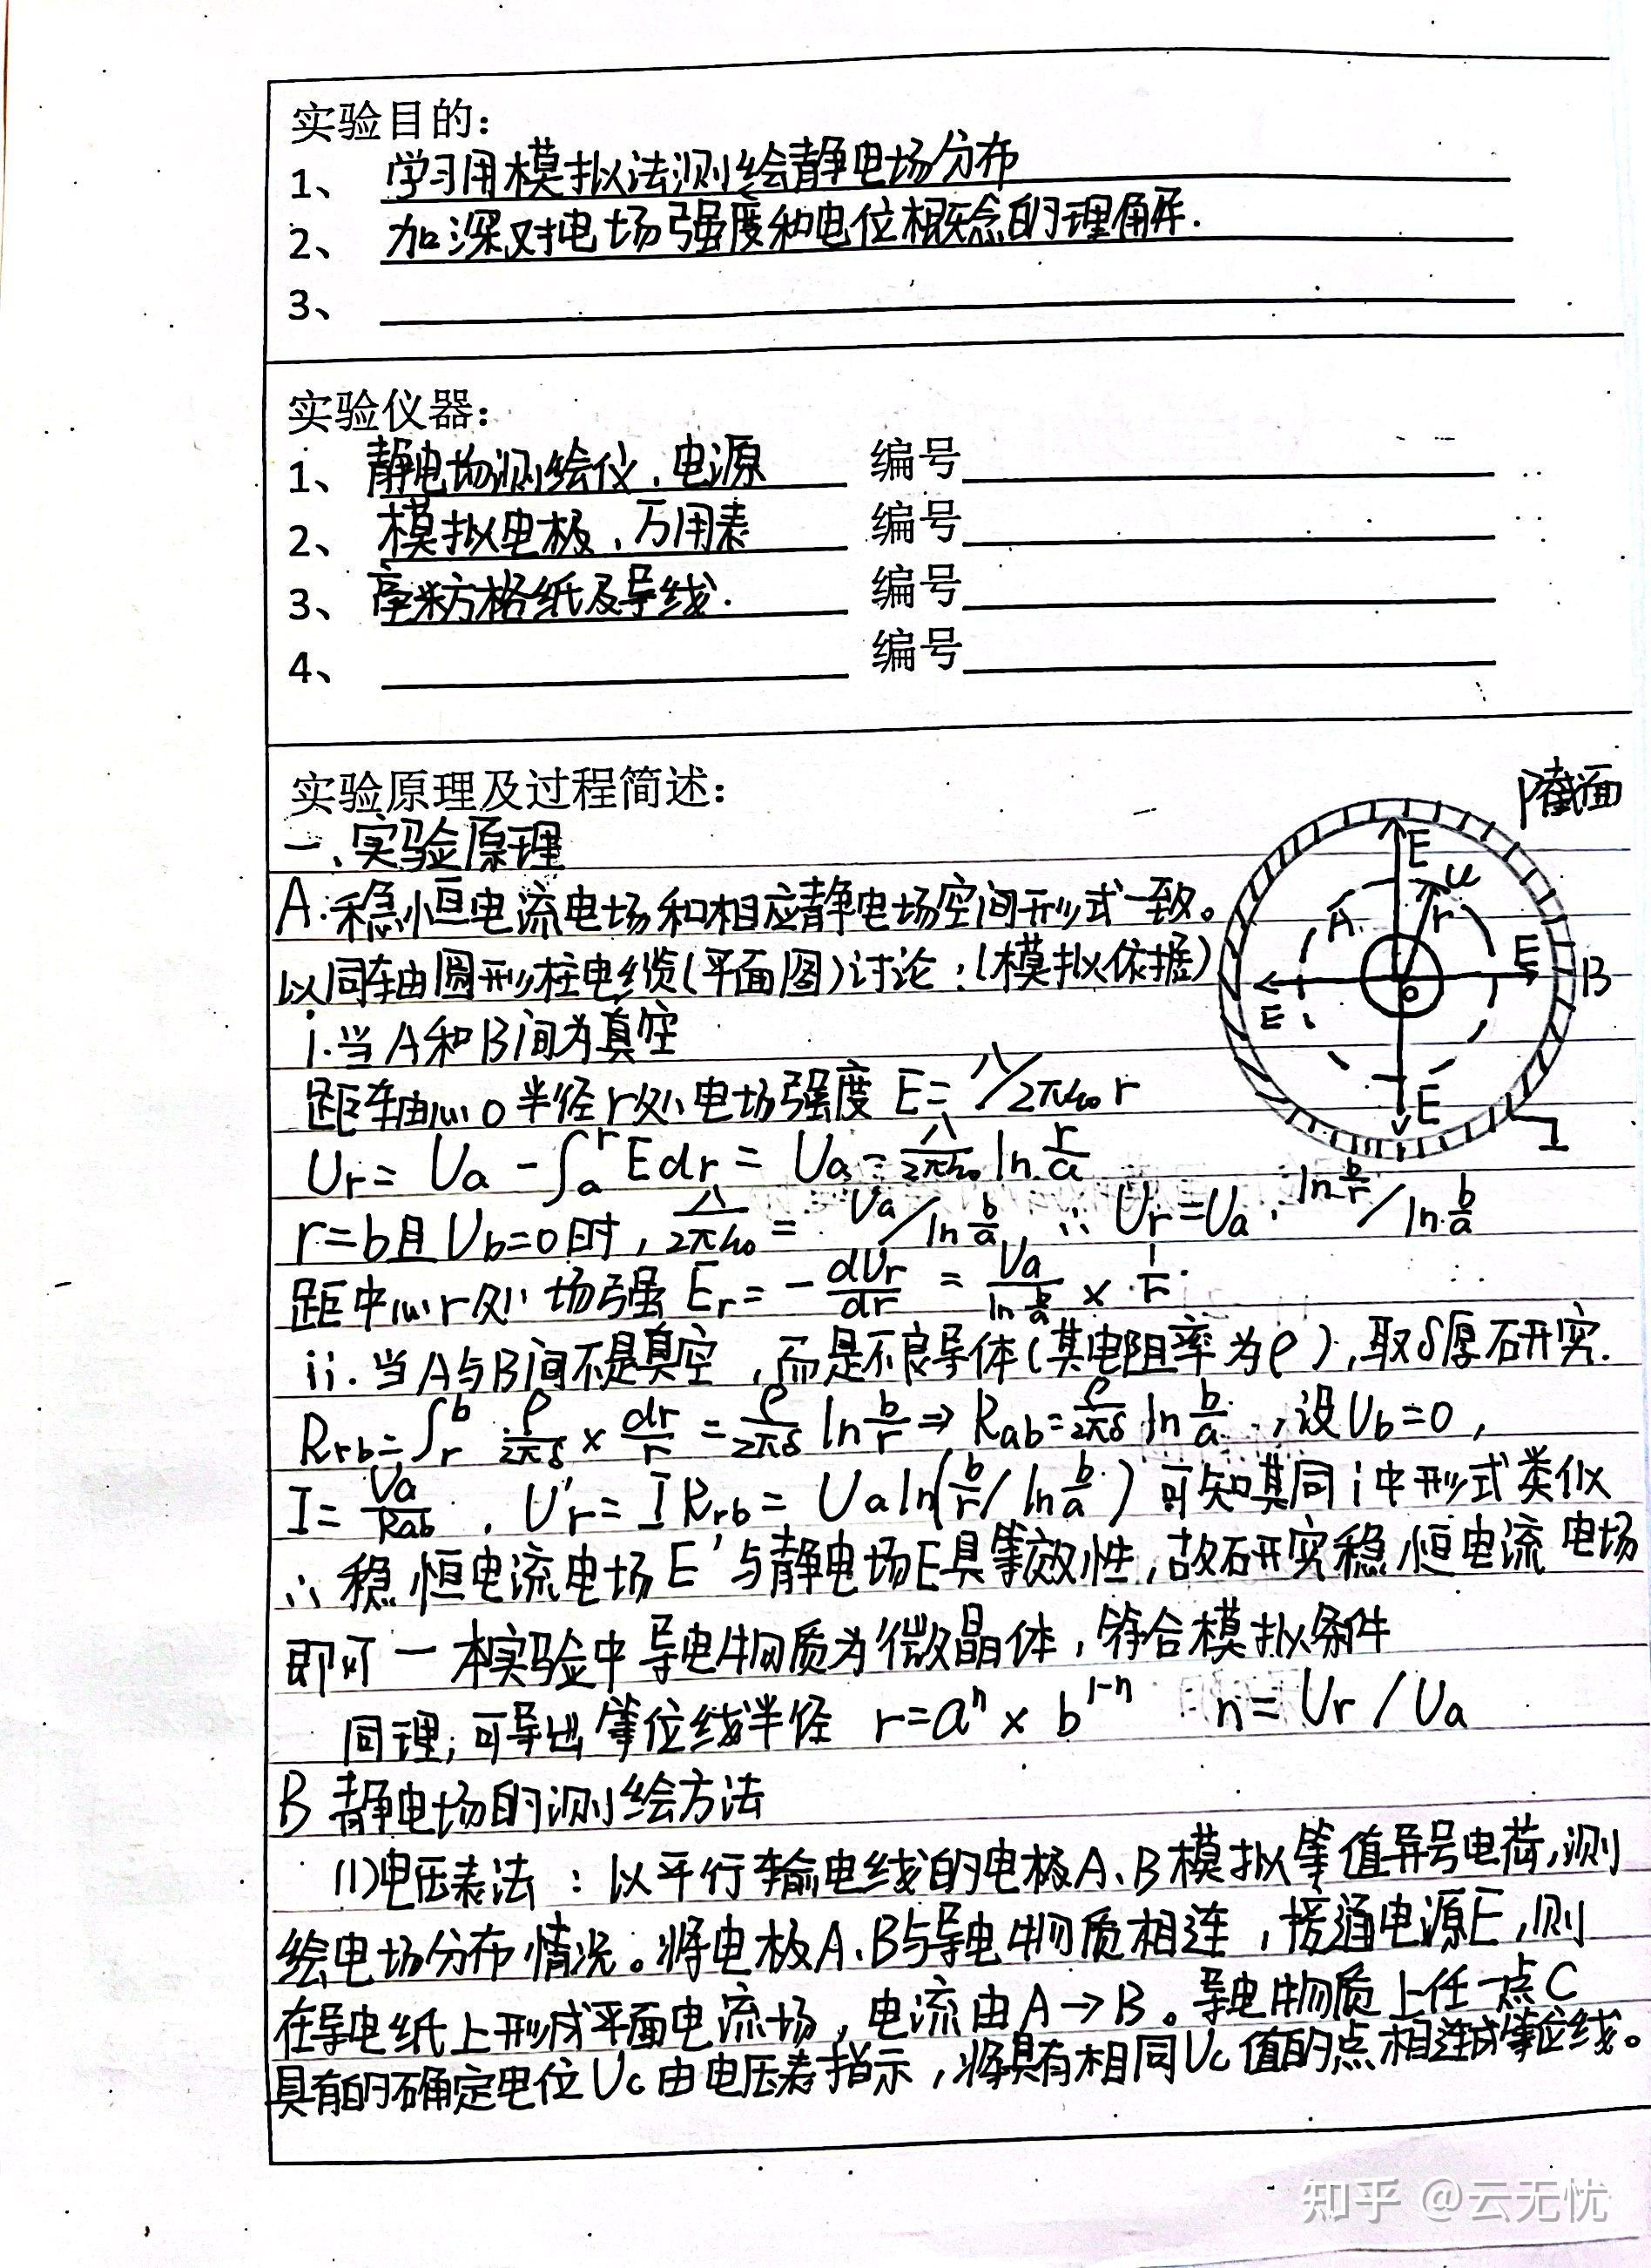 实验目的：
1、 学习用模拟法测绘静电场分布
2、 加深对电场强度和电位概念的理解.
3、
实验仪器：
1、 静电场测绘仪、电源 编号
2、 模拟电极、万用表 编号
3、 毫米方格纸及导线. 编号
4、 编号
实验原理及过程简述：
截面
一、实验原理
A.稳恒电流电场和相应静电场空间形式一致。
以同轴圆形柱电缆(平面图)讨论：(模拟依据)
E
u
A
r
E
B
o
E
E
i.当A和B间为真空
距轴心o半径r处电场强度 E=λ/2πε₀r
Ur= Ua -∫ₐʳEdr = Ua - λ/2πε₀ ln r/a
r=b且Ub=0时, λ/2πε₀ = Ua/ln b/a, ∴ Ur=Ua·ln b/r / ln b/a
距中心r处场强 Er= - dUr/dr = Ua/ln b/a × 1/r
ii. 当A与B间不是真空,而是不良导体(其电阻率为ρ),取δ厚研究.
Rrb=∫ᵣᵇ ρ/2πδ × dr/r = ρ/2πδ ln b/r ⇒ Rab= ρ/2πδ ln b/a, 设Ub=0,
I= Ua/Rab, U'r= I Rrb= Ualn(b/r / ln b/a) 可知其同i中形式类似
∴ 稳恒电流电场E'与静电场E具等效性,故研究稳恒电流电场
即可 一 本实验中导电物质为微晶体,符合模拟条件
同理,可导出等位线半径 r=aⁿ × b¹⁻ⁿ n= Ur / Ua
B 静电场的测绘方法
(1)电压表法：以平行输电线的电极A、B模拟等值异号电荷,测
绘电场分布情况。将电极A、B与导电物质相连,接通电源E,则
在导电纸上形成平面电流场,电流由A→B。导电物质上任一点C
具有的确定电位Uc由电压表指示,将具有相同Uc值的点相连成等位线。
知乎 @云无忧